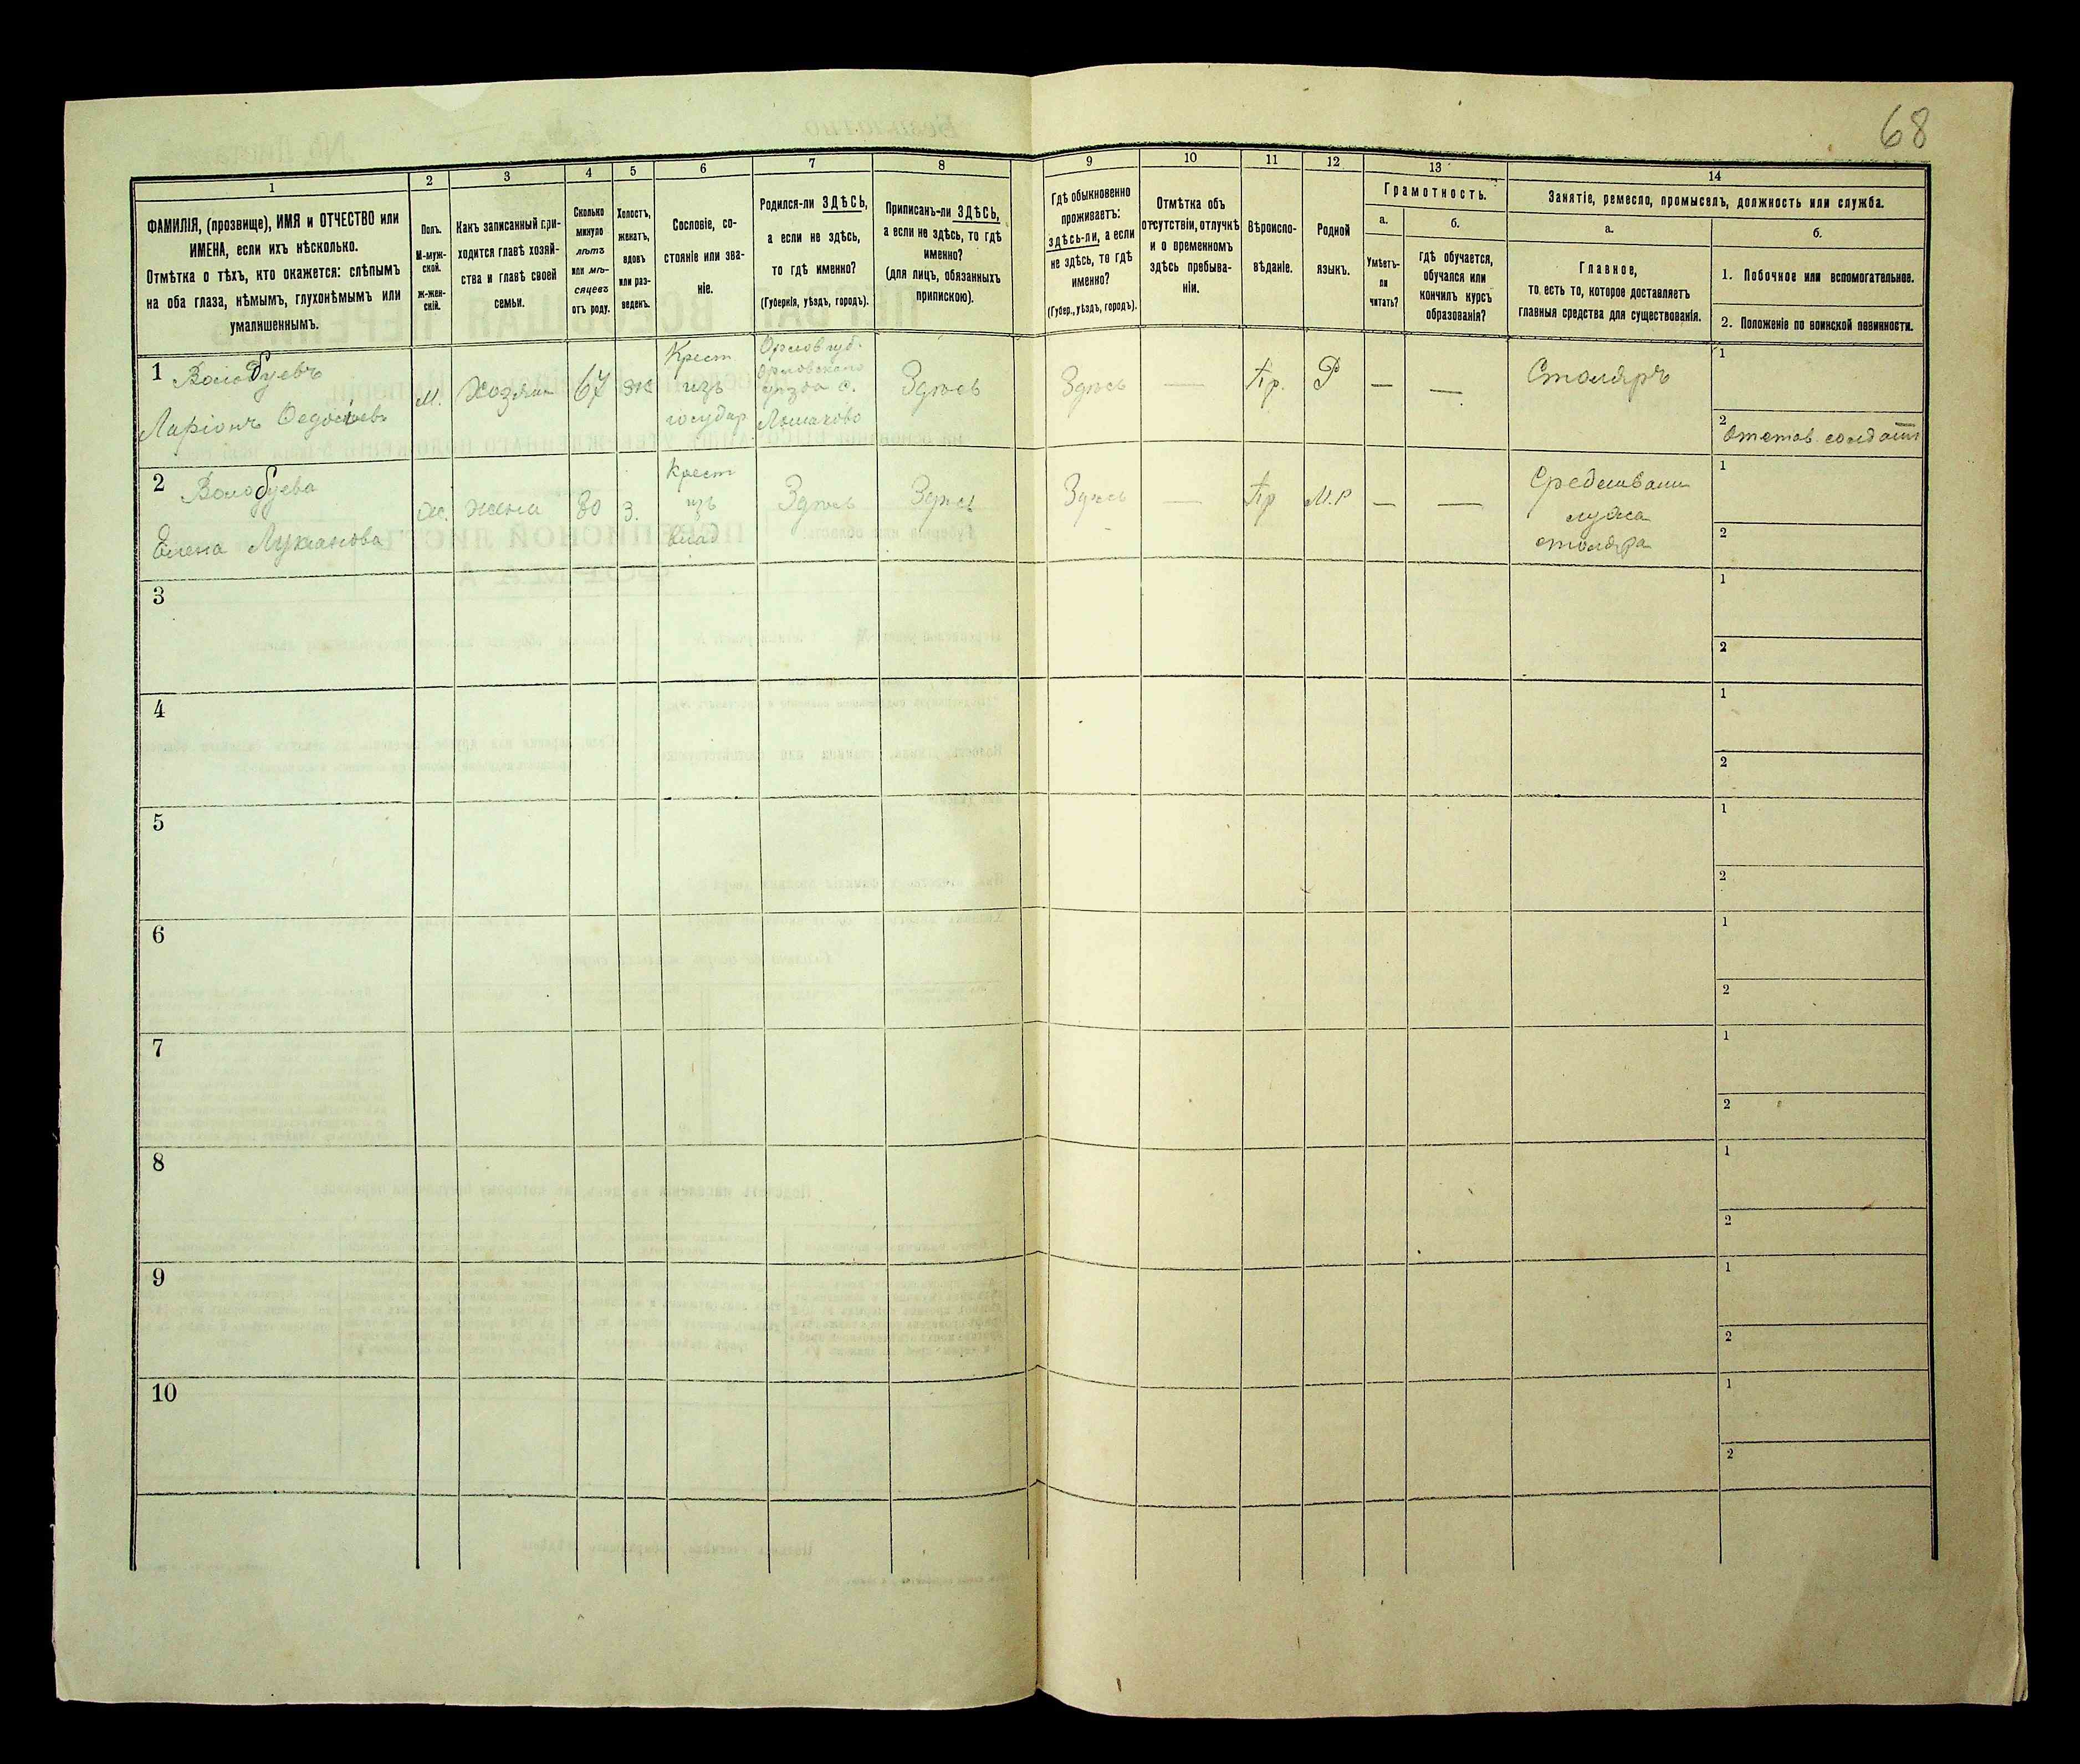 68
1
2
3
4
5
6
7
8
9
10
11
12
13
14
ФАМИЛІЯ, (прозвище), ИМЯ и ОТЧЕСТВО или
ИМЕНА, если ихъ нѣсколько.
Отмѣтка о тѣхъ, кто окажется: слѣпымъ
на оба глаза, нѣмымъ, глухонѣмымъ или
умалишеннымъ.
Полъ.
М-муж-
ской.
ж-жен-
скій.
Какъ записанный при-
ходится главѣ хозяй-
ства и главѣ своей
семьи.
Сколько
минуло
лѣтъ
или мѣ-
сяцевъ
отъ роду.
Холостъ,
женатъ,
вдовъ
или раз-
веденъ.
Сословіе, со-
стояніе или зва-
ніе.
Родился-ли ЗДѢСЬ,
а если не здѣсь,
то гдѣ именно?
(Губернія, уѣздъ, городъ).
Приписанъ-ли ЗДѢСЬ,
а если не здѣсь, то гдѣ
именно?
(для лицъ, обязанныхъ
припискою).
Гдѣ обыкновенно
проживаетъ:
здѣсь-ли, а если
не здѣсь, то гдѣ
именно?
(Губер., уѣздъ, городъ).
Отмѣтка объ
отсутствіи, отлучкѣ
и о временномъ
здѣсь пребыва-
ніи.
Вѣроиспо-
вѣданіе.
Родной
языкъ.
Грамотность.
а.
Умѣетъ-
ли
читать?
б.
гдѣ обучается,
обучался или
кончилъ курсъ
образованія?
Занятіе, ремесло, промыселъ, должность или служба.
а.
Главное,
то есть то, которое доставляетъ
главныя средства для существованія.
б.
1. Побочное или вспомогательное.
2. Положеніе по воинской повинности.
1
Волобуевъ
Ларіонъ Федосіевъ
М.
Хозяин
67
ж
Крест
изъ
государ
Орлов губ.
Орловскаго
уезда с.
Здѣсь
Здѣсь
—
Пр.
Р
—
—
Столяръ
1
2
Отстав. солдатъ
2
Волобуева
Елена Лукианова
Ж.
жена
80
з.
Крест
изъ
Здѣсь
Здѣсь
Здѣсь
—
Пр
М.Р
—
—
Средствами
мужа
столяра
1
2
3
1
2
4
1
2
5
1
2
6
1
2
7
1
2
8
1
2
9
1
2
10
1
2